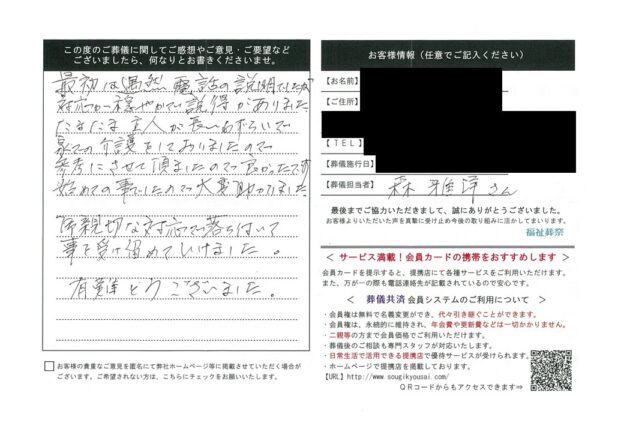 この度のご葬儀に関してご感想やご意見・ご要望など
ございましたら、何なりとお書きくださいませ。
最初は偶然電話の説明でしたが
対応が穏やかで説得がありました
たまたま主人が長いわずらいで
家での介護をしておりましたので
参考にさせて頂ましたので良かったです
始めての事でしたので大変助かりました
御親切な対応で落ちついて
事を受け留めていけました。
有難とうございました。
お客様の貴重なご意見を匿名にて弊社ホームページ等に掲載させていただく場合が
ございます。ご希望されない方は、こちらにチェックをお願いいたします。
お客様情報（任意でご記入ください）
【お名前】
【ご住所】
【ＴＥＬ】
【葬儀施行日】
【葬儀担当者】 森 雅洋さん
最後までご協力いただきまして、誠にありがとうございました。
お客様よりいただいた声を真摯に受け止め今後の取り組みに活かしてまいります。
福祉葬祭
＜ サービス満載！会員カードの携帯をおすすめします ＞
会員カードを提示すると、提携店にて各種サービスをご利用いただけます。
また、万が一の際も電話連絡先が記載されているので安心です。
＜ 葬儀共済 会員システムのご利用について ＞
・会員権は無料で名義変更ができ、代々引き継ぐことができます。
・会員権は、永続的に維持され、年会費や更新費などは一切かかりません。
・二親等の方まで会員価格でご利用いただけます。
・葬儀後のご相談も専門スタッフが対応いたします。
・日常生活で活用できる提携店で優待サービスが受けられます。
・ホームページで提携店を掲載しております。
【URL】http://www.sougikyousai.com/
ＱＲコードからもアクセスできます⇒